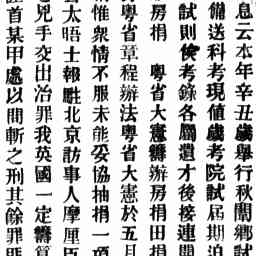 息云本年辛丑歲舉行秋闈鄉試
備送科考現值歲考院試屆期洎
試則候考錄各屬遺才後接連開
房捐　粵省大憲籌辦房捐田捐
粵省章程辦法粵省大憲於五月
惟衆情不服未能妥協抽捐一項
太晤士報駐北京訪事人摩厘臣
兇手交出治罪我英國一定籌算
首某甲處以間斬之刑其餘罪